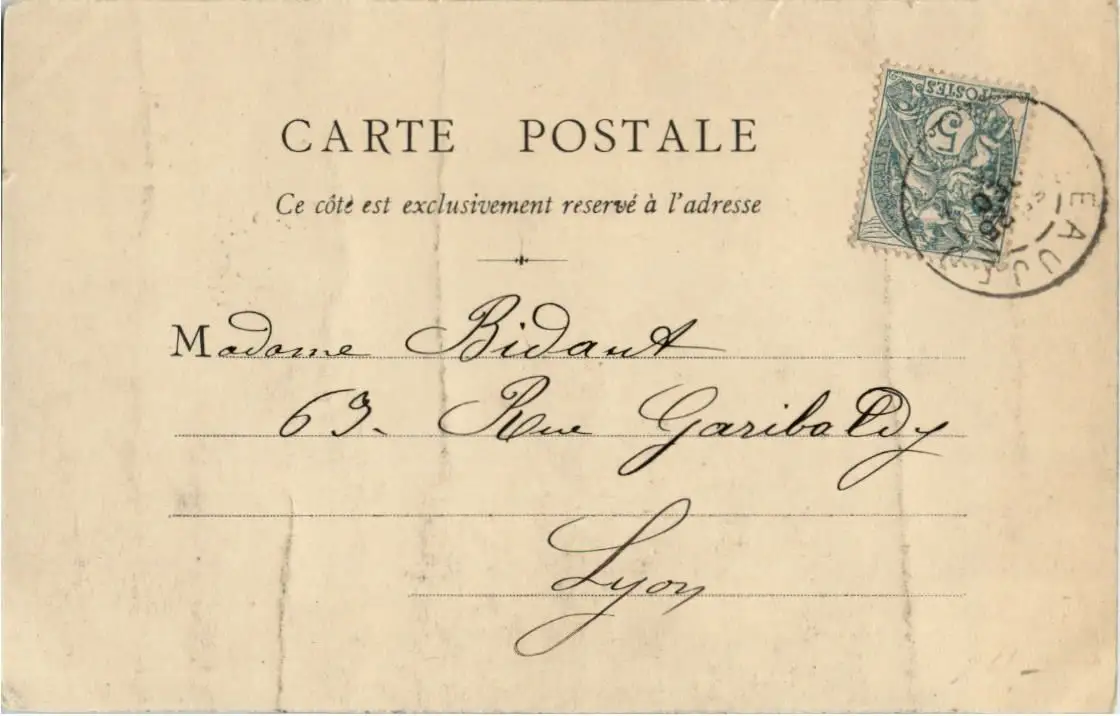 CARTE POSTALE
Ce côté est exclusivement reservé à l'adresse
POSTES
5
EAUJE
Madame Bidaut
63. Rue Garibaldy
Lyon